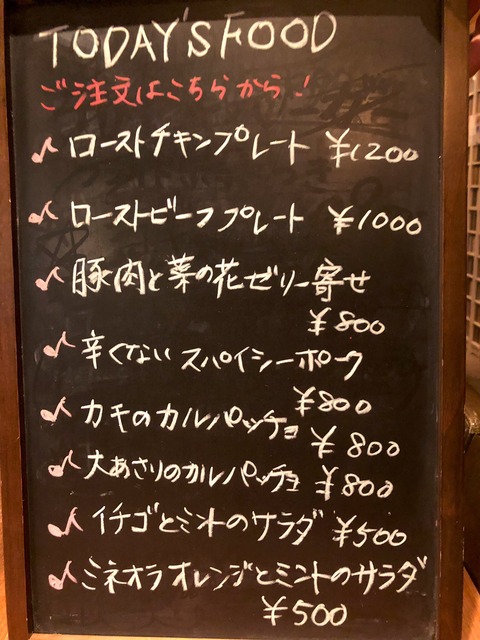 TODAY'S FOOD
ご注文はこちらから!
♪ ローストチキンプレート ¥1200
♪ ローストビーフプレート ¥1000
♪ 豚肉と菜の花ゼリー寄せ
¥800
♪ 辛くない スパイシーポーク
¥800
♪ カキのカルパッチョ ¥800
♪ 大あさりのカルパッチョ ¥800
♪ イチゴとミントのサラダ ¥500
♪ ミネオラオレンジとミントのサラダ
¥500